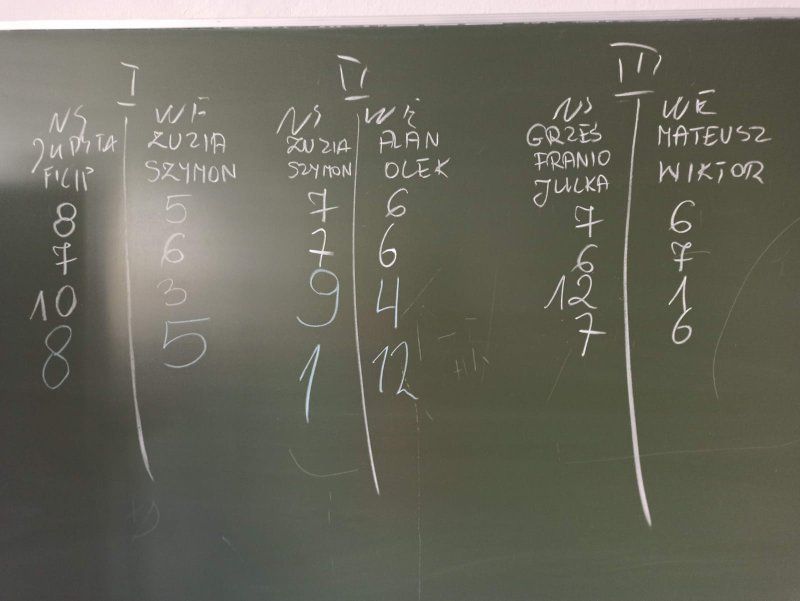 I
NS WE
JUDYTA ZUZIA
FILIP SZYMON
8 5
7 6
10 3
8 5
II
NS WE
ZUZIA ALAN
SZYMON OLEK
7 6
7 6
9 4
1 12
III
NS WE
GRZEŚ MATEUSZ
FRANIO WIKTOR
JULKA
7 6
6 7
12 1
7 6